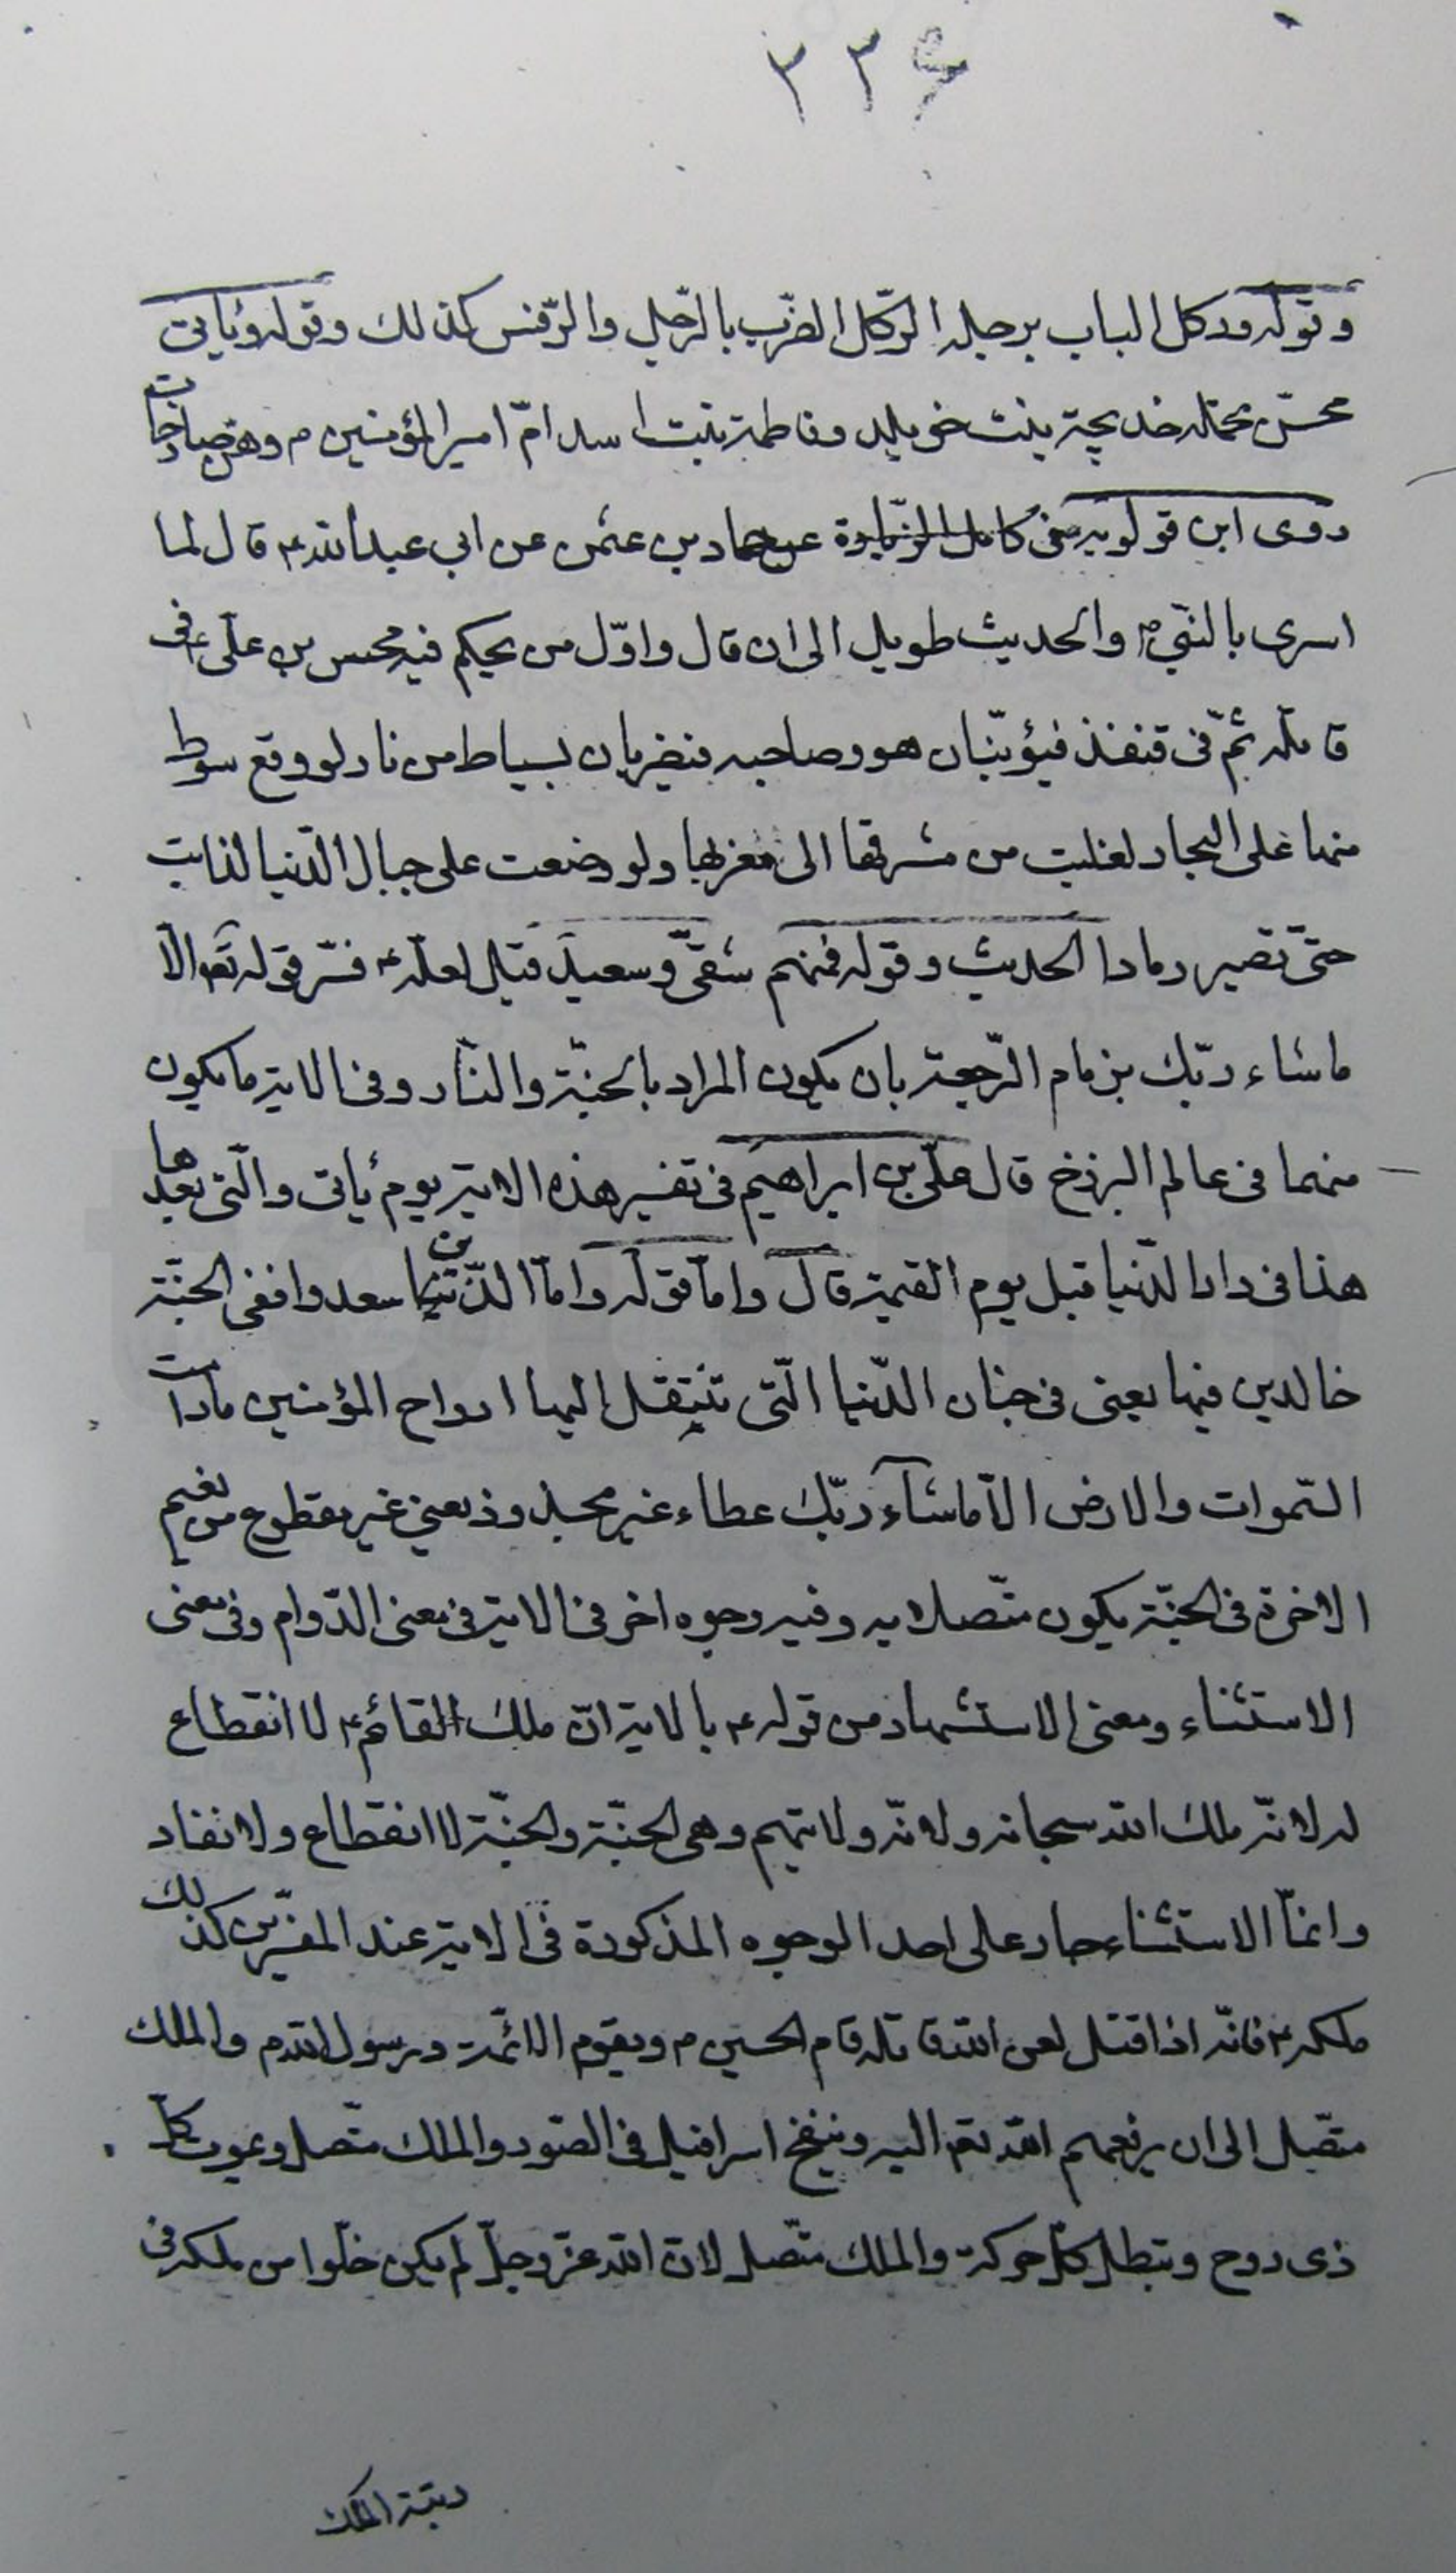 ٣٣۶
وقوله وركل الباب برجله الركل الضرب بالرّجل والرّفس كذلك وقوله ويأتى
محسّن تحمله خديجة بنت خويلد وفاطمة بنت اسد امّ امير المؤمنين ٢ وهنّ صارخات
روى ابن قولويه فى كامل الزيارة عن حماد بن عثمن عن ابى عبد الله ٤ قال لما
اسرى بالنّبىّ ص والحديث طويل الى ان قال واوّل من يحكم فيه محسن بن علىّ ٤ فى
قاتله ثمّ فى قنفذ فيؤتيان هو وصاحبه فيضربان بسياط من نار لو وقع سوط
منها على البحار لغليت من مشرقها الى مغربها ولو وضعت على جبال الدّنيا لذابت
حتّى تصير رمادا الحديث وقوله فمنهم شقىّ وسعيد قيل لعلّه ٤ فسّر قوله تعو الاّ
ما شاء ربّك بزمام الرّجعة بان يكون المراد بالجنّة والنّار وفى الاية ما يكون
منهما فى عالم البرزخ قال علىّ بن ابراهيم فى تفسير هذه الاية يوم يأتى والّتى بعدها
هذا فى دار الدّنيا قبل يوم القيمة قال وامّا قوله وامّا الّذين سعدوا ففى الجنّة
خالدين فيها يعنى فى جنان الدّنيا الّتى تنتقل اليها ارواح المؤمنين مادامت
السّموات والارض الاّ ما شآء ربّك عطاء غير مجذوذ يعنى غير مقطوع من نعيم
الاخرة فى الجنّة يكون متّصلا به وفيه وجوه اخر فى الاية فى معنى الدّوام وفى معنى
الاستثناء ومعنى الاستشهاد من قوله ٤ بالاية انّ ملك القائم ٤ لا انقطاع
له لانّه ملك الله سبحانه ولانّه ولايتهم وهى الجنّة والجنّة لا انقطاع ولا نفاد
وانمّا الاستثناء جار على احد الوجوه المذكورة فى الاية عند المفسّرين كذلك
ملكه ٤ فانّه اذا قتل لعن الله قاتله قام الحسين ٢ ويقوم الائمّة ورسول الله ص والملك
متّصل الى ان يرفعهم الله تعو اليه وينفخ اسرافيل فى الصّور والملك متّصل ويموت كلّ
ذى روح وتبطل كلّ حركة والملك متّصل لانّ الله عزّ وجلّ لم يكن خلوّا من ملكه فى